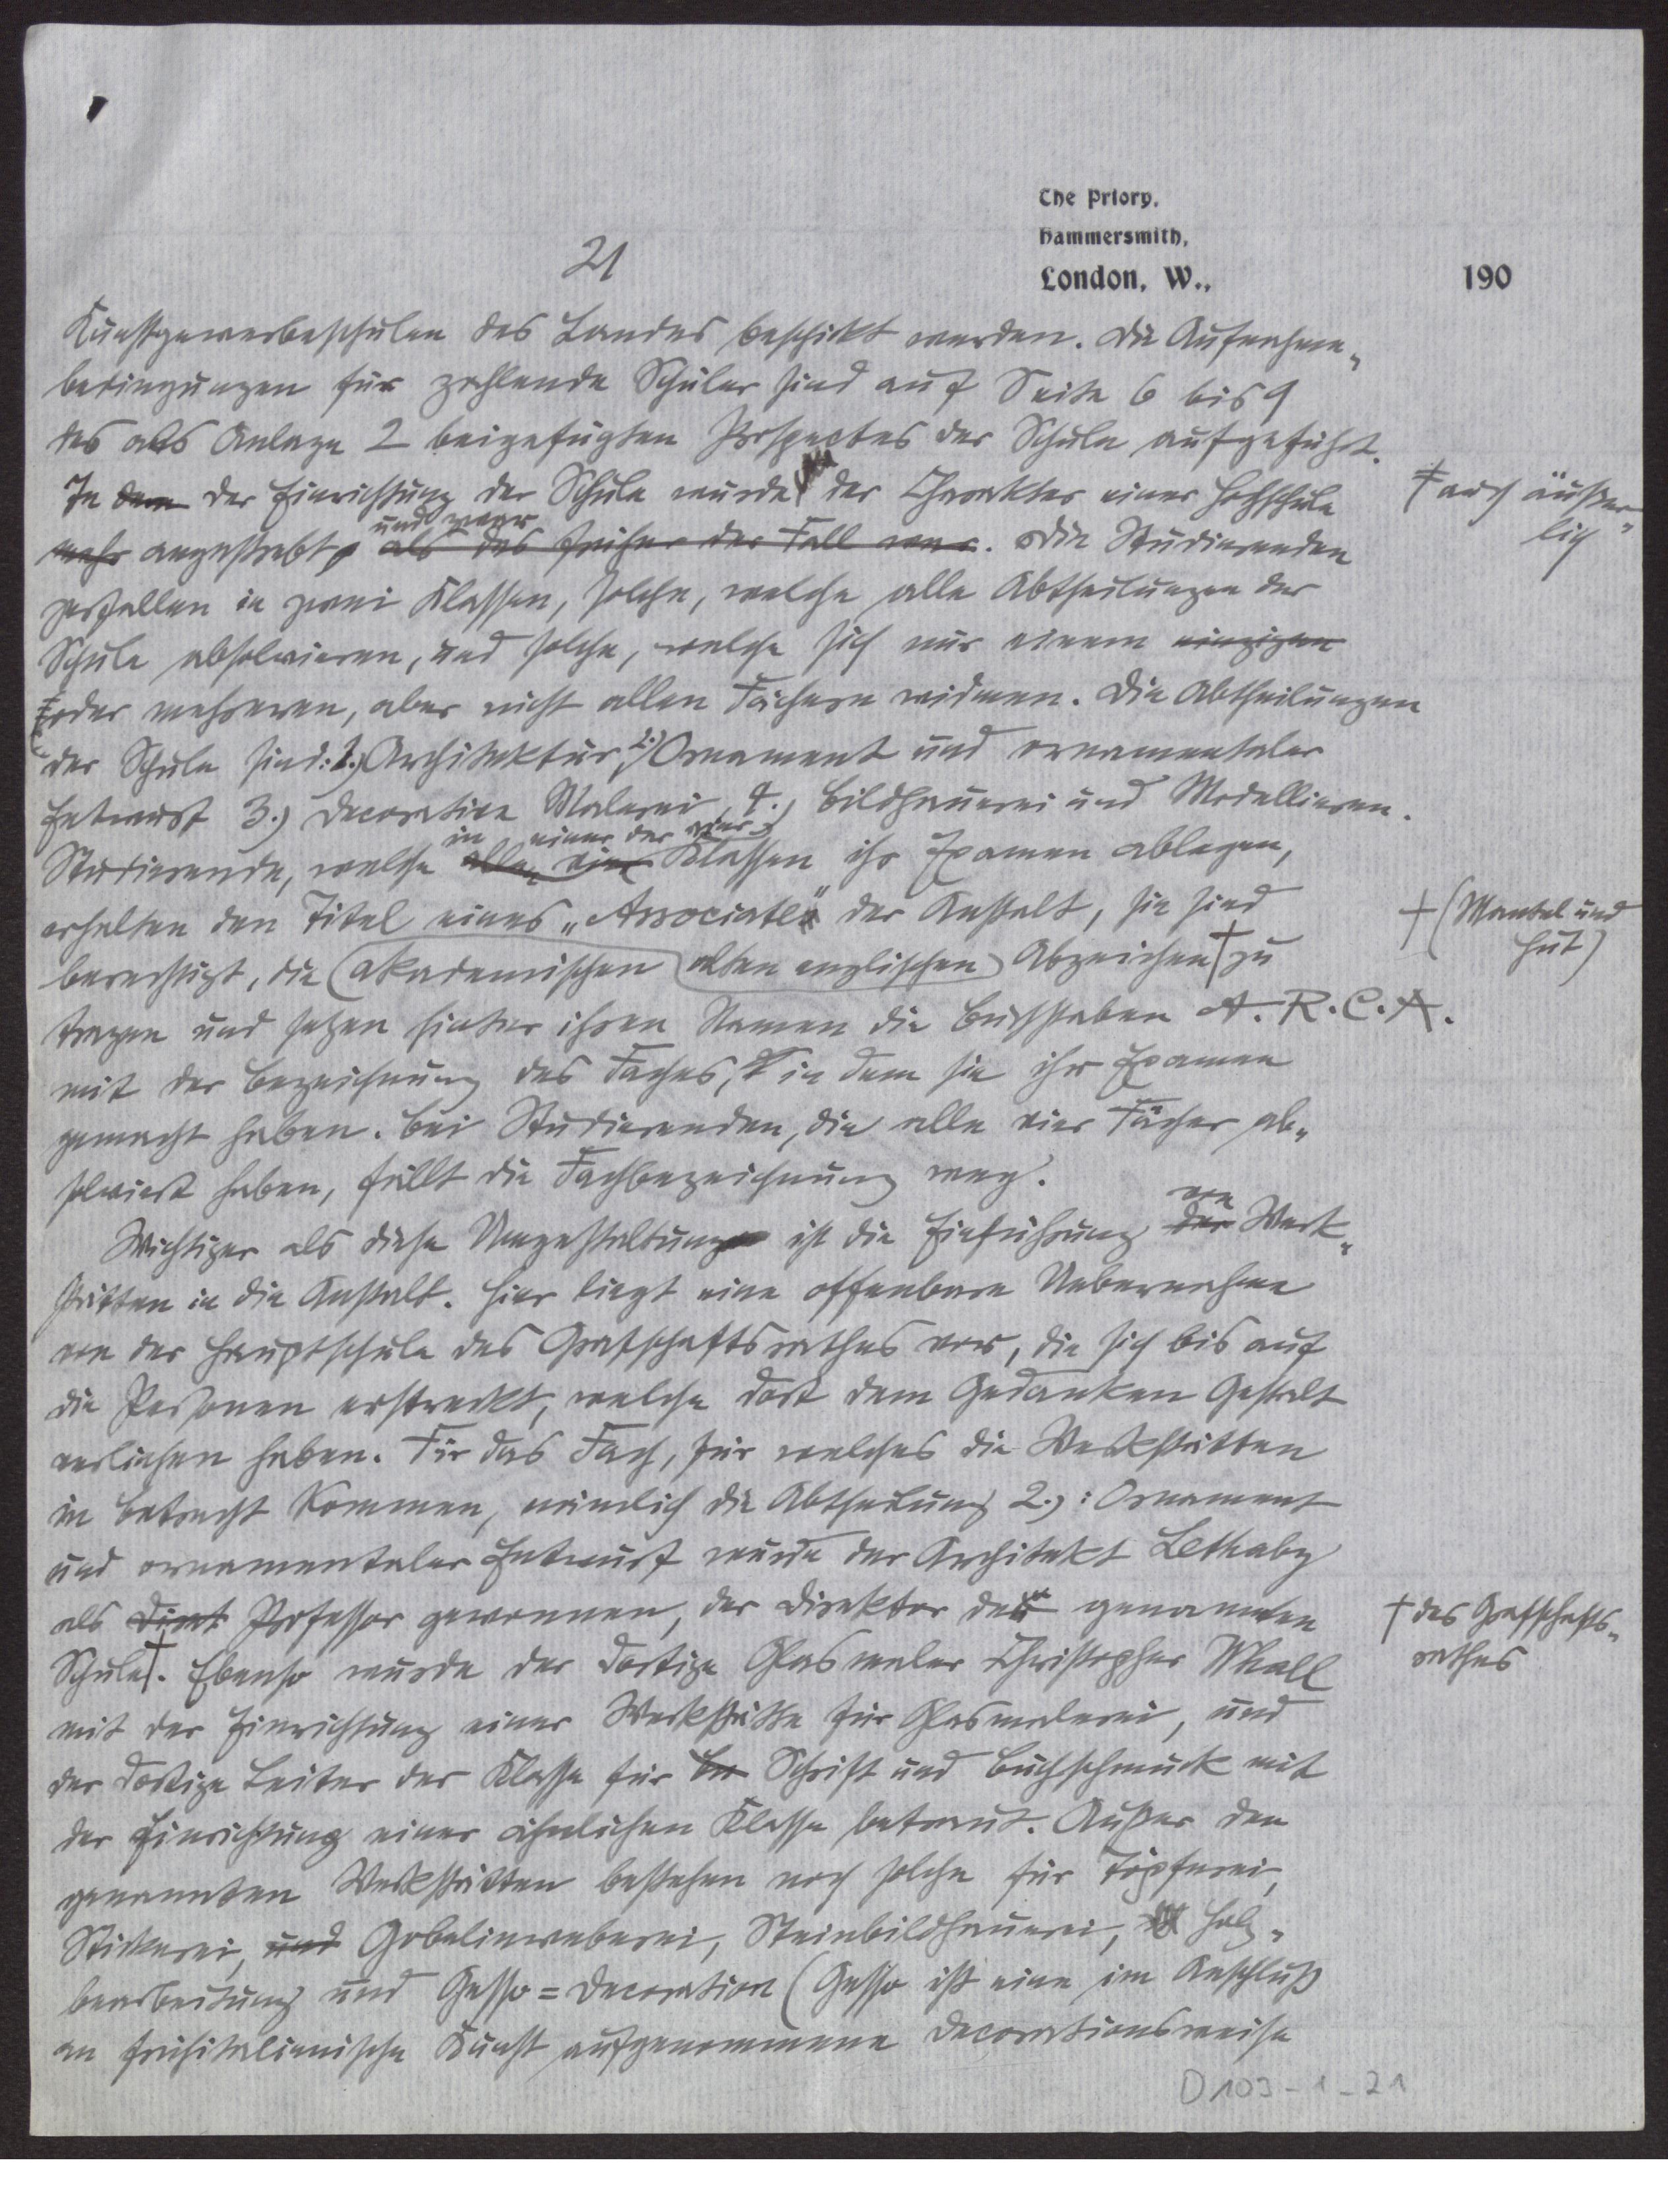 The Priory,
Hammersmith,
21
London, W., 190
Kunstgewerbeschulen des Landes beschickt werden. Die Aufnahme-
bedingungen für zahlende Schüler sind auf Seite 6 bis 9
des als Anlage 2 beigefügten Prospectes der Schule aufgeführt.
In dem der Einrichtung der Schule wurde der Charakter einer Hochschule
‡ auch äußer-
lich
und zwar
mehr angestrebt, als das früher der Fall war. Die Studierenden
zerfallen in zwei Klassen, solche, welche alle Abtheilungen der
Schule absolvieren, und solche, welche sich nur einem einzigen
oder mehreren, aber nicht allen Fächern widmen. Die Abtheilungen
der Schule sind: 1.) Architektur, 2.) Ornament und ornamentaler
Entwurf 3.) Decorative Malerei, 4.) Bildhauerei und Modellieren.
in einer der vier
Studierende, welche allen vier Klassen ihr Examen ablegen,
erhalten den Titel eines „Associate" der Anstalt, sie sind
† (Mantel und
Hut)
berechtigt, die (akademischen alten englischen) Abzeichen † zu
tragen und setzen hinter ihren Namen die Buchstaben A. R. C. A.
mit der Bezeichnung des Faches, in dem sie ihr Examen
gemacht haben. Bei Studierenden, die alle vier Fächer ab-
solviert haben, fällt die Fachbezeichnung weg.
von
Wichtiger als diese Umgestaltung ist die Einführung der Werk-
stätten in die Anstalt. Hier liegt eine offenbare Uebernahme
von der Hauptschule des Grafschaftsrathes vor, die sich bis auf
die Personen erstreckt, welche dort dem Gedanken Gestalt
verliehen haben. Für das Fach, für welches die Werkstätten
in Betracht kommen, nämlich die Abtheilung 2.): Ornament
und ornamentaler Entwurf wurde der Architekt Lethaby
als Dirt Professor gewonnen, der Direktor der genannten
† des Grafschafts-
rathes
Schule †. Ebenso wurde der dortige Glasmaler Christopher Whall
mit der Einrichtung einer Werkstätte für Glasmalerei, und
der dortige Leiter der Klasse für Bu Schrift und Buchschmuck mit
der Einrichtung einer ähnlichen Klasse betraut. Außer den
genannten Werkstätten bestehen noch solche für Töpferei,
Stickerei, und Gobelinweberei, Steinbildhauerei, Holz-
bearbeitung und Gesso=Decoration (Gesso ist eine im Anschluß
an frühitalienische Kunst aufgenommene Decorationsweise
D103-1-21